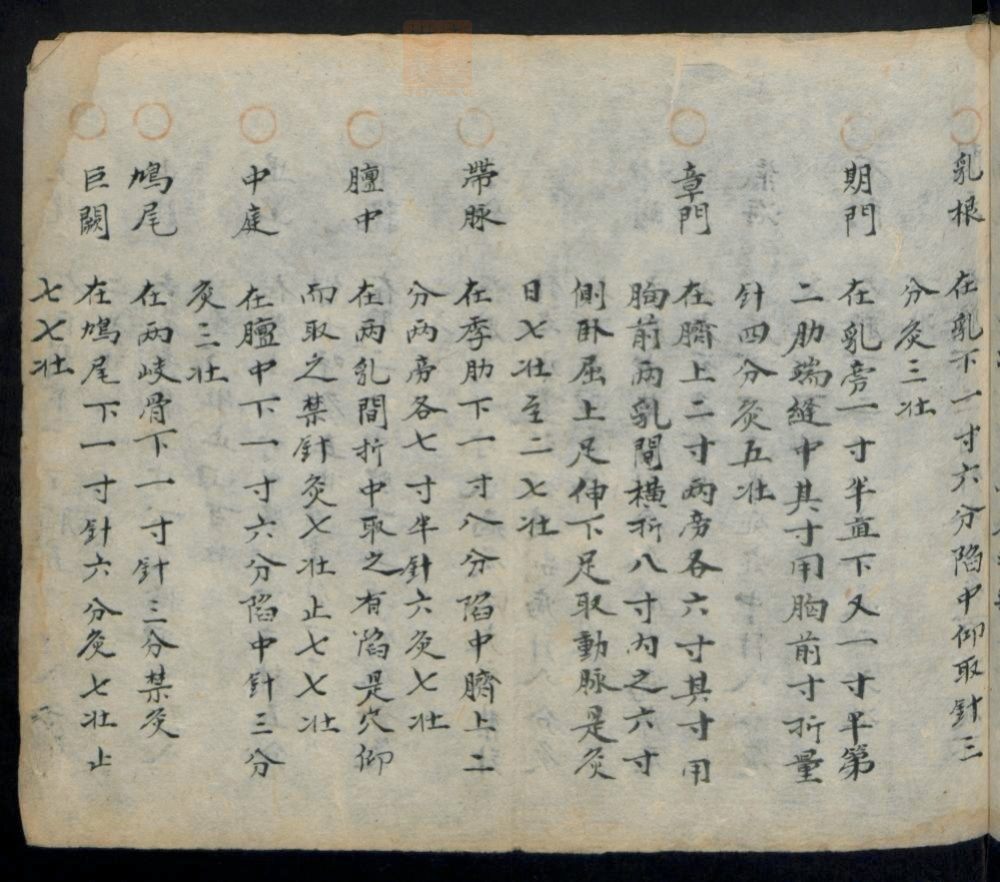 乳根 在乳下一寸六分陷中仰取針三
分灸三壮
期門 在乳旁一寸半直下又一寸半第
二肋端縫中其寸用胸前寸折量
針四分灸五壮
章門 在臍上二寸两旁各六寸其寸用
胸前两乳間横折八寸内之六寸
側卧屈上足伸下足取動脉是灸
日七壮至二七壮
帶脉 在季肋下一寸八分陷中臍上二
分两旁各七寸半針六灸七壮
膻中 在两乳間折中取之有陷是穴仰
而取之禁針灸七壮止七七壮
中庭 在膻中下一寸六分陷中針三分
灸三壮
鳩尾 在两岐骨下一寸針三分禁灸
巨闕 在鳩尾下一寸針六分灸七壮止
七七壮